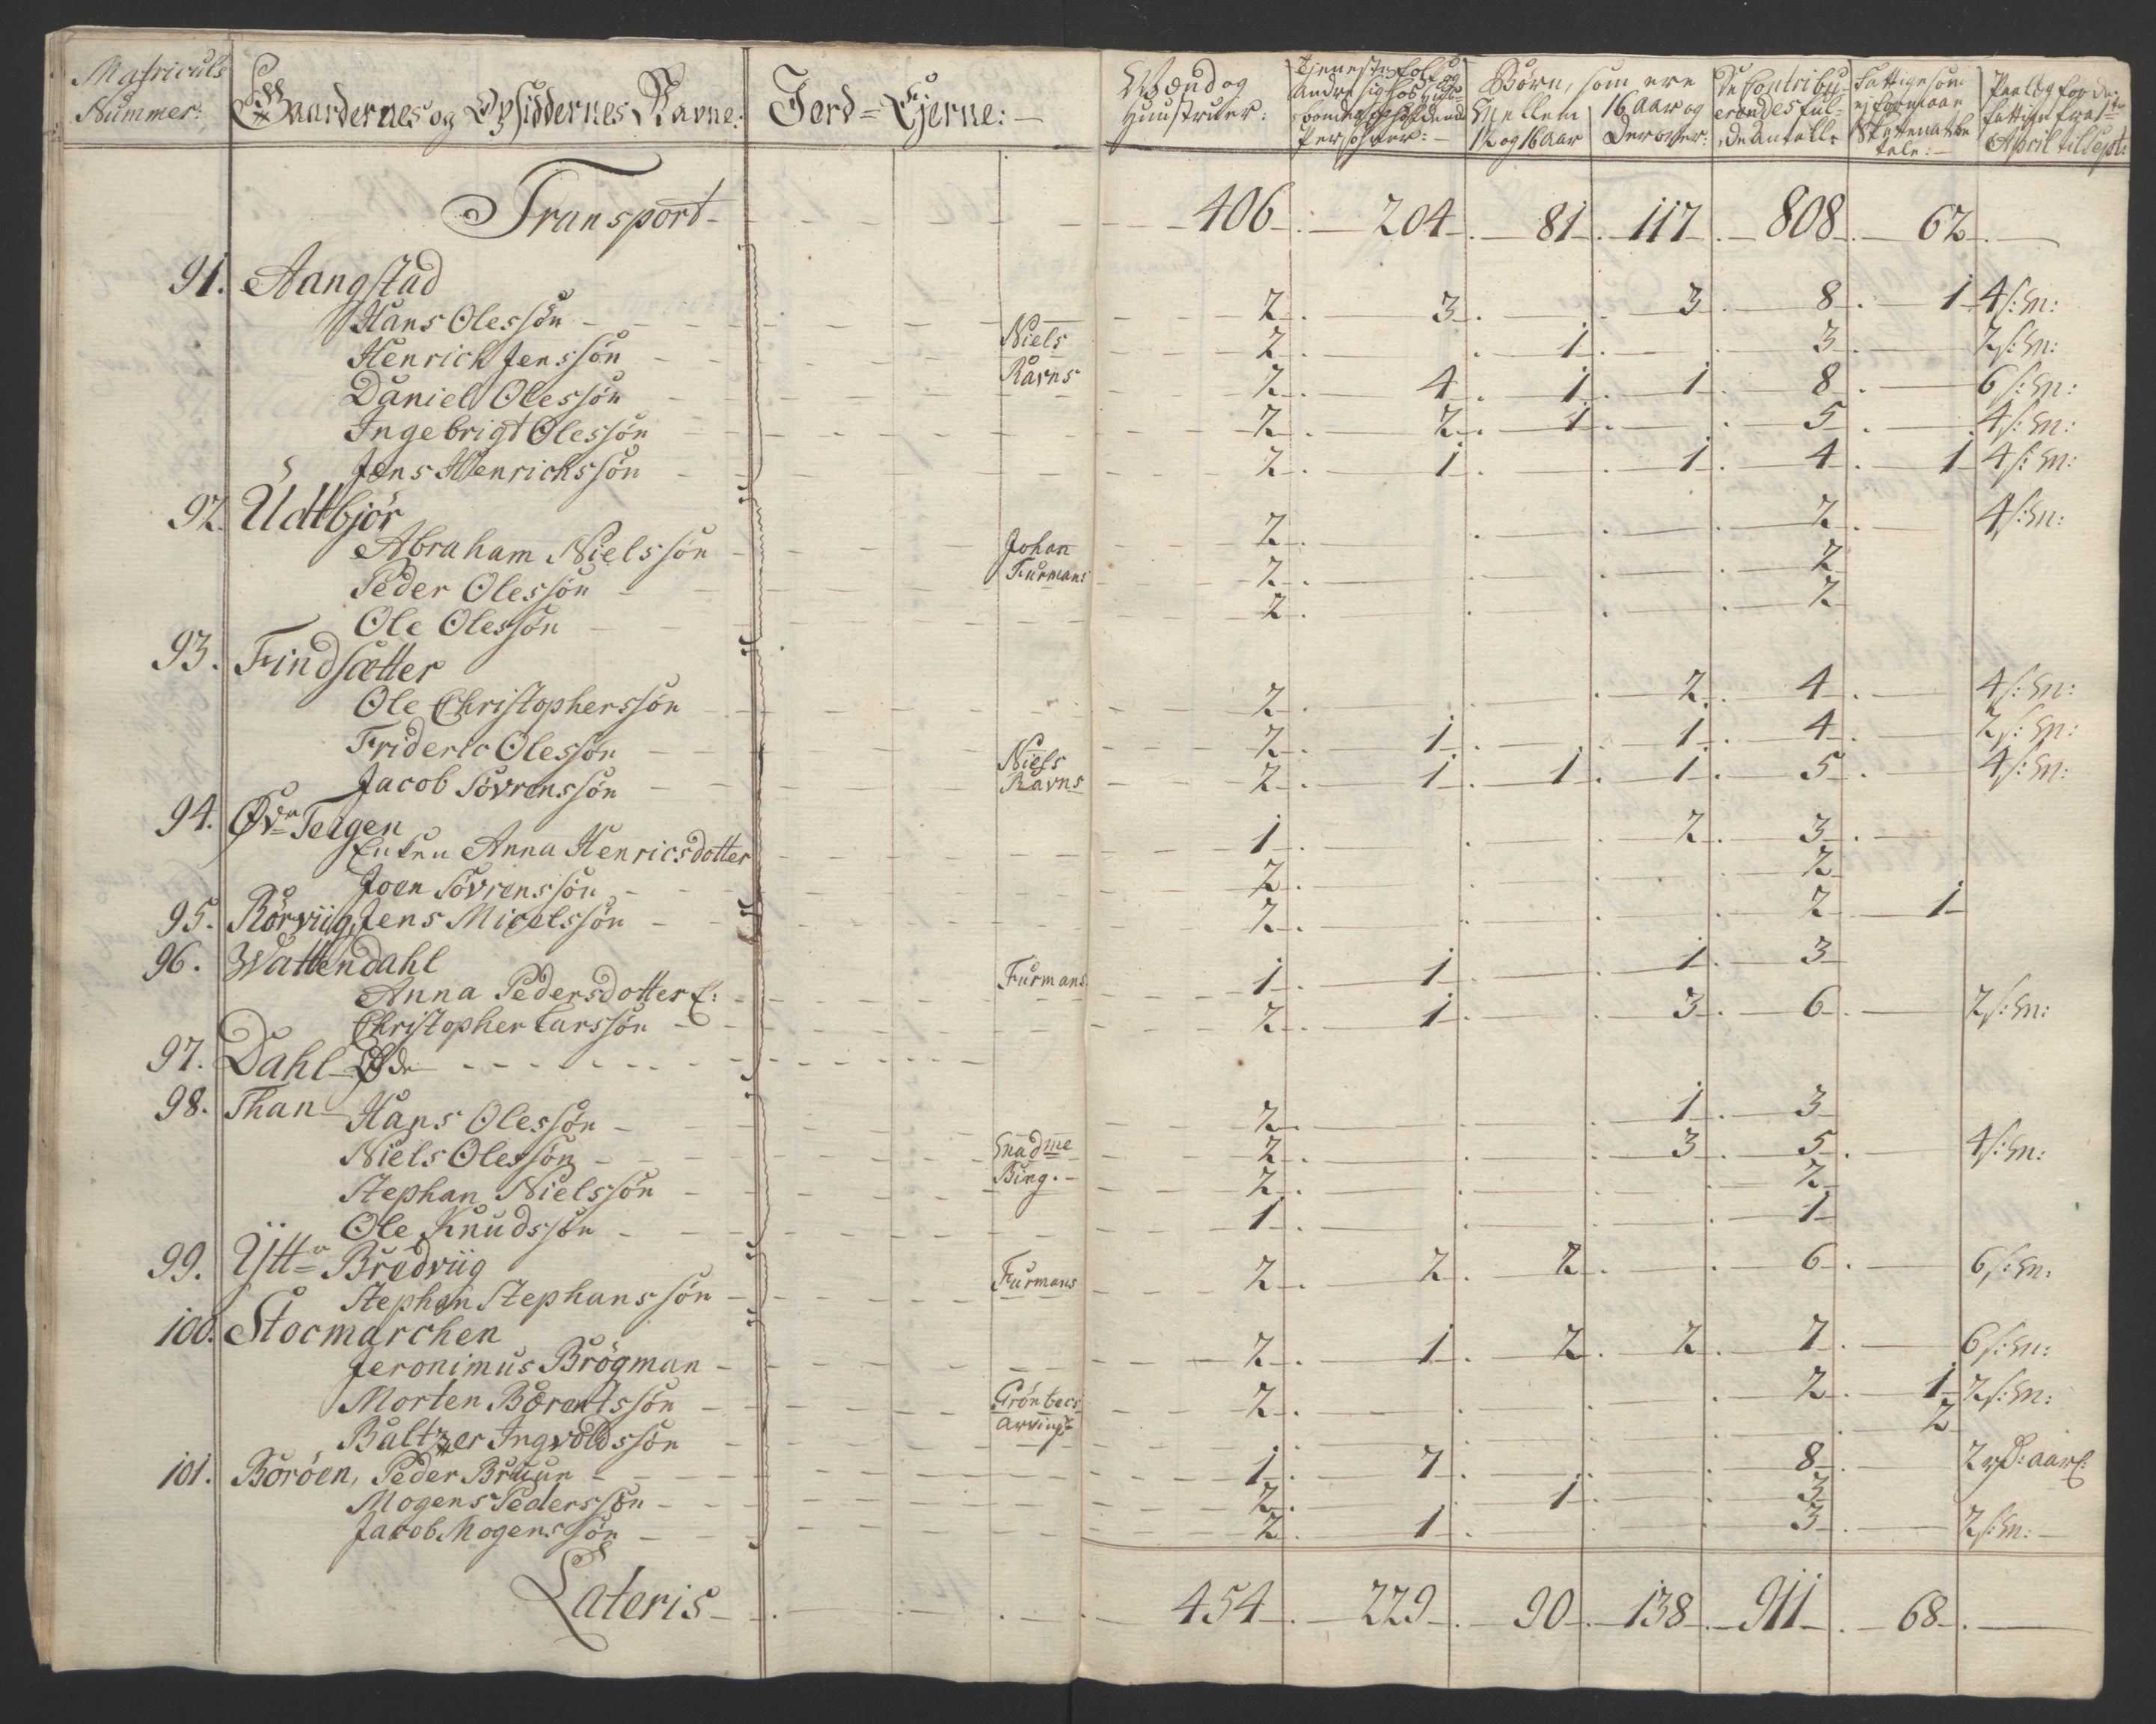 Matriculs Nummer: | Gaardernes og Opsiddernes Navne: | Jord-Ejerne: | Mænd og Hustruer: | Tieneste Folk og andre sig hos opholdende Personer: | Børn, som ere Mellem 12 og 16 Aar | 16 Aar og derover: | De Contribuerendes fulde Antall: | Fattige som ej formaar Skatten at betale: | Paalæg for de fattige fra April til Sept:
Transport - 406. 204. 81. 117. 808. 62.
91. Aangstad
Hans Olessøn - 2. 3. 3. 8. 1 4 s: M:
Henrich Jenssøn - Niels 2. 1. 3. 2 s: M:
Daniel Olessøn - Ravns 2. 4. 1. 1. 8. 6 s: M:
Ingebrigt Olessøn - 2. 2. 1. 5. 4 s: M:
Jens Henrichssøn - 2. 1. 1. 4. 1 4 s: M:
92. Udtbjør
Abraham Nielssøn - Johan 2. 2. 4 s: M:
Peder Olessøn - Furmans 2. 2
Ole Olessøn - 2. 2
93. Findsætter
Ole Christopherssøn - 2. 2. 4. 4 s: M:
Frideric Olessøn - Niels 2. 1. 1. 4. 2 s: M:
Jacob Sövrenssøn - Ravns 2. 1. 1. 1. 5. 4 s: M:
94. Øvr Teigen
Enken Anna Henricsdotter 1. 2. 3.
Joen Sövrenssøn - 2. 2
95. Rörviig, Jens Micelssøn - 2. 2. 1
96. Wattendahl
Anna Pedersdotter E: - Furmans 1. 1. 1. 3
Christopher Larssøn - 2. 1. 3. 6. 2 s: M:
97. Dahl - Øde - - -
98. Than - Hans Olessøn - 2. 1. 3
Niels Olessøn - Madme 2. 3. 5. 4 s: M:
Stephan Nielssøn - Bing. - 2. 2
Ole Knudssøn - 1. 1
99. Ytt- Bredviig
Stephen Stephanssøn - Furmans 2. 2. 2. 6. 6 s: M:
100. Stocmarchen
Jeronimus Brögman - 2. 1. 2. 2. 7. 6 s: M:
Morten Berentssøn - Grönbecs 2. 2. 1 2 s: M:
Baltzer Ingvoldssøn - Arving- 2
101. Boröen, Peder Bruun - 1. 7. 8. 2 rd: aarl:
Mogens Pederssøn - 2. 1. 3
Jacob Mogenssøn - 2. 1. 3. 2 s: M: -
Lateris - 454. 229. 90. 138. 911. 68.